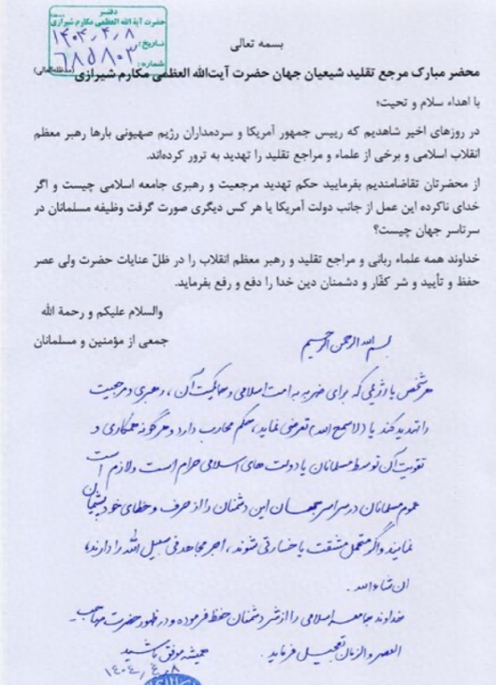 دفتر
حضرت آیة الله العظمی مکارم شیرازی (مدظله)
تاریخ: ۱۴۰۴٫۴٫۸
شماره: ۶۸۵۸۰۳
بسمه تعالی
محضر مبارک مرجع تقلید شیعیان جهان حضرت آیت‌الله العظمی مکارم شیرازی (مدظله‌العالی)
با اهداء سلام و تحیت؛
در روزهای اخیر شاهدیم که رییس جمهور آمریکا و سردمداران رژیم صهیونی بارها رهبر معظم
انقلاب اسلامی و برخی از علماء و مراجع تقلید را تهدید به ترور کرده‌اند.
از محضرتان تقاضامندیم بفرمایید حکم تهدید مرجعیت و رهبری جامعه اسلامی چیست و اگر
خدای ناکرده این عمل از جانب دولت آمریکا یا هر کس دیگری صورت گرفت وظیفه مسلمانان در
سرتاسر جهان چیست؟
خداوند همه علماء ربانی و مراجع تقلید و رهبر معظم انقلاب را در ظلّ عنایات حضرت ولی عصر
حفظ و تأیید و شر کفّار و دشمنان دین خدا را دفع و رفع بفرماید.
والسلام علیکم و رحمة الله
جمعی از مؤمنین و مسلمانان
بسم الله الرحمن الرحیم
هر شخص یا رژیمی که برای ضربه به امت اسلامی و حاکمیت آن، رهبری و مرجعیت
را تهدید کند یا (لاسمح الله) تعرضی نماید، حکم محارب دارد و هرگونه همکاری و
تقویت آن توسط مسلمانان یا دولت های اسلامی حرام است و لازم است
عموم مسلمانان در سراسر جهان این دشمنان را از حرف و خطای خود پشیمان
نمایند و اگر متحمل مشقت یا خسارتی شوند، اجر مجاهد فی سبیل الله را دارند،
ان شاء الله.
خداوند جامعه اسلامی را از شر دشمنان حفظ فرموده و در ظهور حضرت صاحب
العصر و الزمان تعجیل فرماید.
همیشه موفق باشید
۱۴۰۴٫۴٫۸